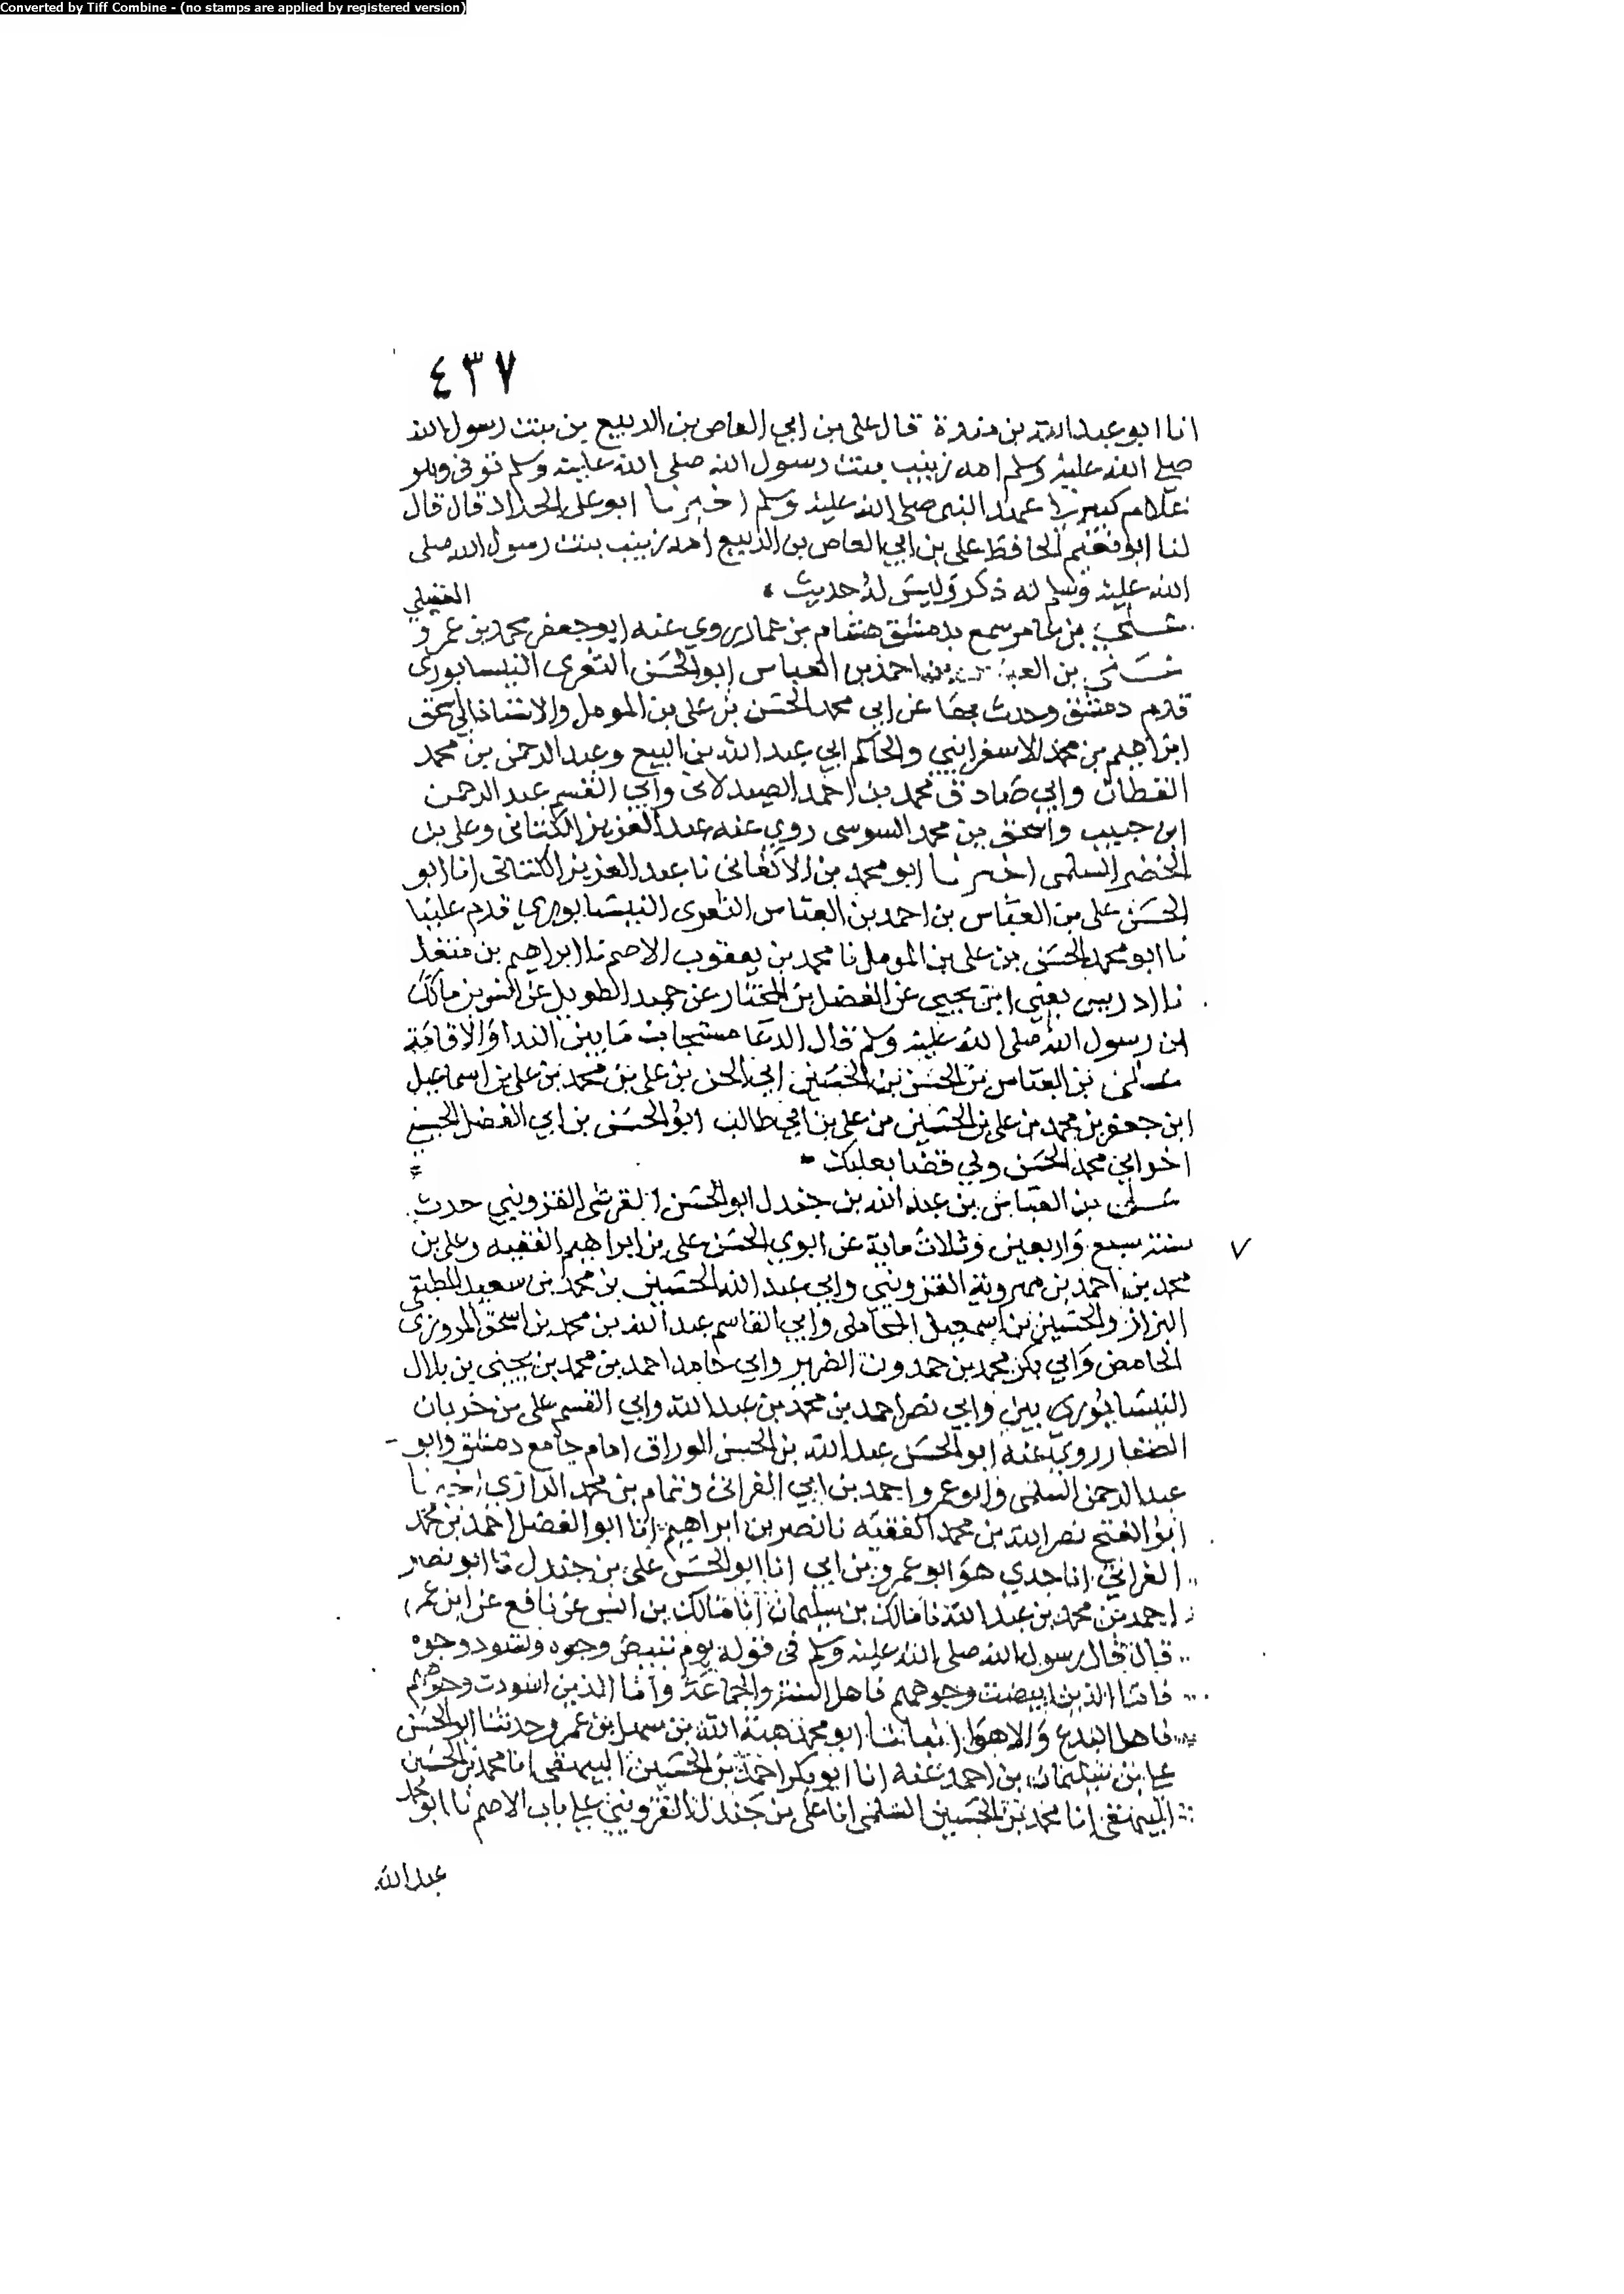 Converted by Tiff Combine - (no stamps are applied by registered version)
٤٣٧
انا ابو عبد الله بن مندة قال علي بن ابي العاص بن الربيع بن بنت رسول الله
صلى الله عليه وسلم امه زينب بنت رسول الله صلى الله عليه وسلم توفي وهو
غلام كبير في عهد النبي صلى الله عليه وسلم اخبرنا ابو علي الحداد قال قال
لنا ابو نعيم الحافظ علي بن ابي العاص بن الربيع امه زينب بنت رسول الله صلى
الله عليه وسلم له ذكر وليس له حديث
العقيلي
علي بن عامر سمع بدمشق هشام بن عمار روي عنه ابو جعفر محمد بن عمرو
علي بن العباس بن احمد بن العباس ابو الحسن الثغرى النيسابورى
قدم دمشق وحدث بها عن ابي محمد الحسن بن علي بن المومل والاستاذ ابي اسحق
ابراهيم بن محمد الاسفرايني والحاكم ابي عبد الله بن البيع وعبد الرحمن بن محمد
القطان وابي صادق محمد بن احمد الصيدلانى وابي القسم عبد الرحمن
ابن حبيب واسحق بن محمد السوسى روي عنه عبد العزيز الكتانى وعلي بن
الخضر السلمى اخبرنا ابو محمد بن الاكفانى نا عبد العزيز الكتانى انا ابو
الحسن علي بن العباس بن احمد بن العباس الثغرى النيسابوري قدم علينا
نا ابو محمد الحسن بن علي بن المومل نا محمد بن يعقوب الاصم نا ابراهيم بن منقذ
نا ادريس يعني ابن يحيى عن الفضل بن المختار عن حميد الطويل عن انس بن مالك
ان رسول الله صلى الله عليه وسلم قال الدعا مستجاب ما بين الندا والاقامة
علي بن العباس بن الحسن بن الحسين ابي الجن بن علي بن محمد بن علي بن اسماعيل
ابن جعفر بن محمد بن علي بن الحسين بن علي بن ابي طالب ابو الحسن بن ابي الفضل الحسيني
اخو ابي محمد الحسن ولي قضا بعلبك
علي بن العباس بن عبد الله بن جندل ابو الحسن القرشى القزويني حدث
سنة سبع واربعين وثلاث ماية عن ابوي الحسن علي بن ابراهيم الفقيه وعلي بن
٧
محمد بن احمد بن مهروية القزويني وابي عبد الله الحسين بن محمد بن سعيد المطبقى
البزاز والحسين بن اسمعيل المحاملى وابي القاسم عبد الله بن محمد بن اسحق المروزى
الحامض وابي بكر محمد بن حمدون الضرير وابي حامد احمد بن محمد بن يحيى بن بلال
النيسابوريين وابي نصر احمد بن محمد بن عبد الله وابي القسم علي بن خربان
الصفار روي عنه ابو الحسن عبد الله بن الحسن الوراق امام جامع دمشق وابو
عبد الرحمن السلمى وابو عمرو احمد بن ابي الفراتى وتمام بن محمد الرازي اخبرنا
ابو الفتح نصر الله بن محمد الفقيه نا نصر بن ابراهيم انا ابو الفضل احمد بن محمد
الفراتي انا جدي هو ابو عمرو بن ابي انا ابو الحسن علي بن جندل نا ابو نصر
احمد بن محمد بن عبد الله نا مالك بن سليمان انا مالك بن انس عن نافع عن ابن عمر
قال قال رسول الله صلى الله عليه وسلم فى قوله يوم تبيض وجوه وتسود وجوه
فاما الذين ابيضت وجوههم فاهل السنة والجماعة واما الذين اسودت وجوههم
فاهل البدع والاهوا انبانا ابو محمد هبة الله بن سهل بن عمر وحدثنا ابو الحسن
علي بن سليمان بن احمد عنه انا ابو بكر احمد بن الحسين البيهقى انا محمد بن الحسين
البيهقى انا محمد بن الحسين السلمى انا علي بن جندل القزويني علي باب الاصم نا ابو محمد
عبد الله